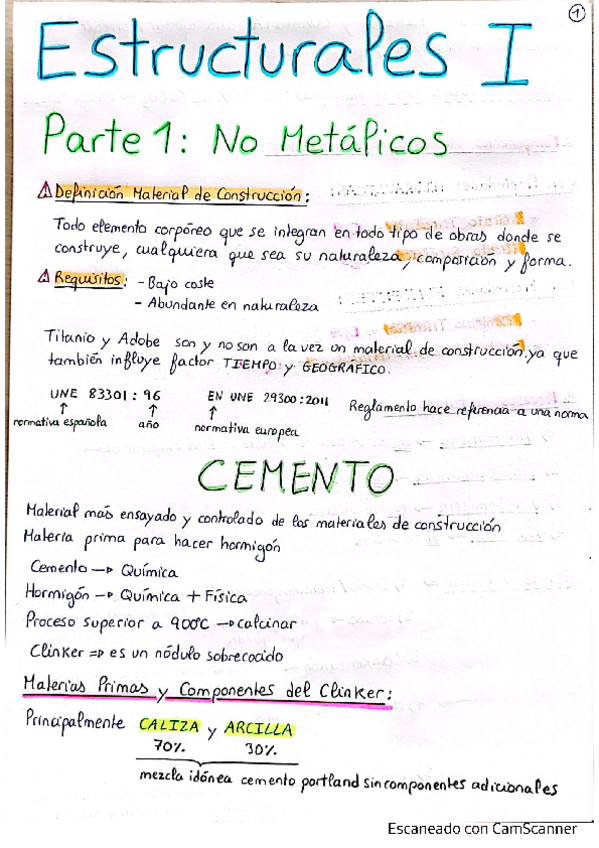 1
Estructurales I
Parte 1: No Metálicos
⚠ Definición Material de Construcción:
Todo elemento corpóreo que se integran en todo tipo de obras donde se
construye, cualquiera que sea su naturaleza, composición y forma.
⚠ Requisitos: - Bajo coste
- Abundante en naturaleza
Titanio y Adobe son y no son a la vez un material de construcción, ya que
también influye factor TIEMPO y GEOGRÁFICO.
UNE 83301:96 EN UNE 29300:2011 Reglamento hace referencia a una norma
↑ ↑ ↑
normativa española año normativa europea
CEMENTO
Material más ensayado y controlado de los materiales de construcción
Materia prima para hacer hormigón
Cemento → Química
Hormigón → Química + Física
Proceso superior a 900°C → calcinar
Clinker ⇒ es un nódulo sobrecocido
Materias Primas y Componentes del Clinker:
Principalmente CALIZA y ARCILLA
70% 30%
mezcla idónea cemento portland sin componentes adicionales
Escaneado con CamScanner